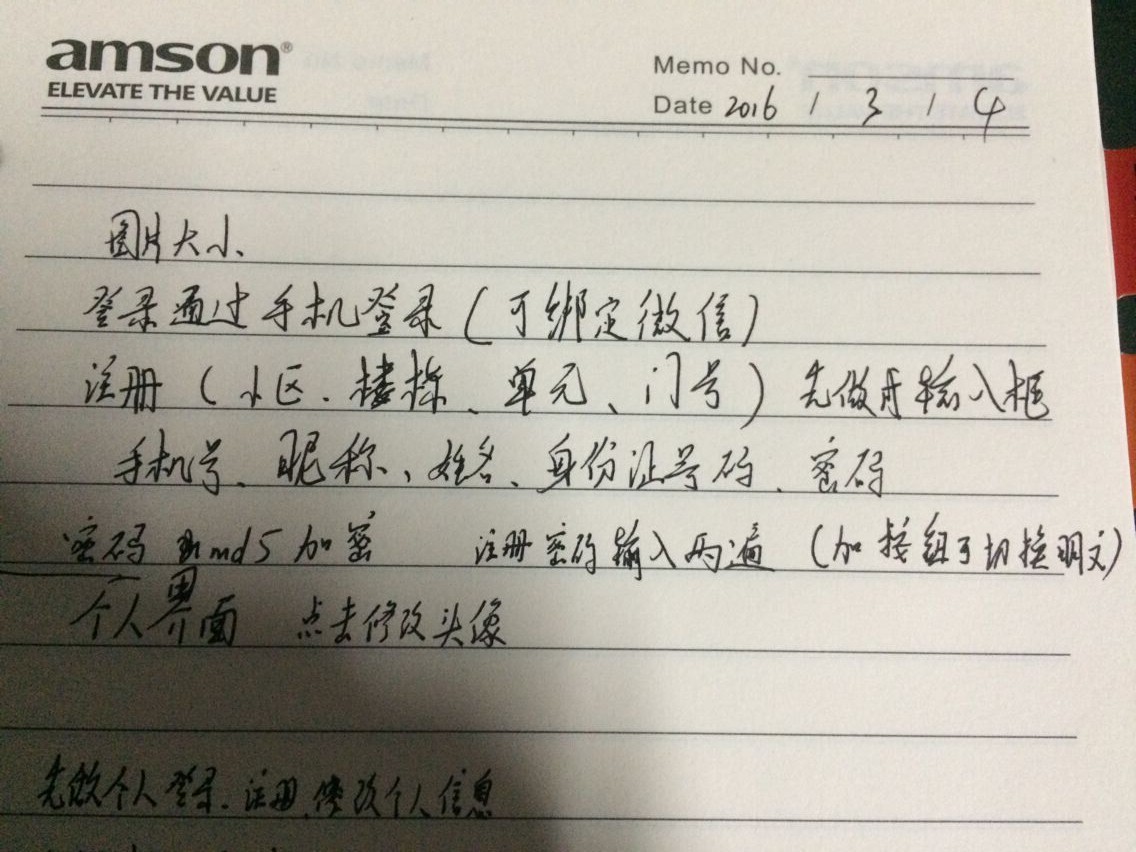 amson®
ELEVATE THE VALUE
Memo No.
Date 2016 / 3 / 4
图片大小
登录通过手机登录(可绑定微信)
注册(小区、楼栋、单元、门号) 先做成输入框
手机号、昵称、姓名、身份证号码、密码
密码 md5加密 注册密码输入两遍 (加按钮可切换明文)
个人界面 点击修改头像
先做个人登录、注册、修改个人信息